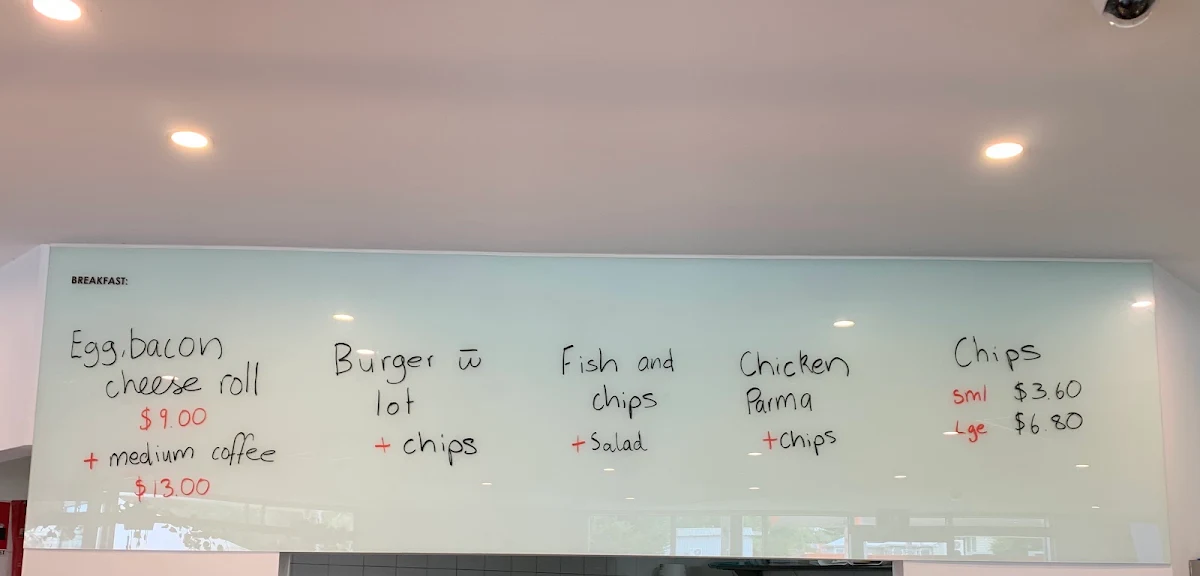 BREAKFAST:
Egg, bacon
cheese roll
$9.00
+ medium coffee
$13.00
Burger w̅
lot
+ chips
Fish and
chips
+ Salad
Chicken
Parma
+ chips
Chips
Sml $3.60
Lge $6.80